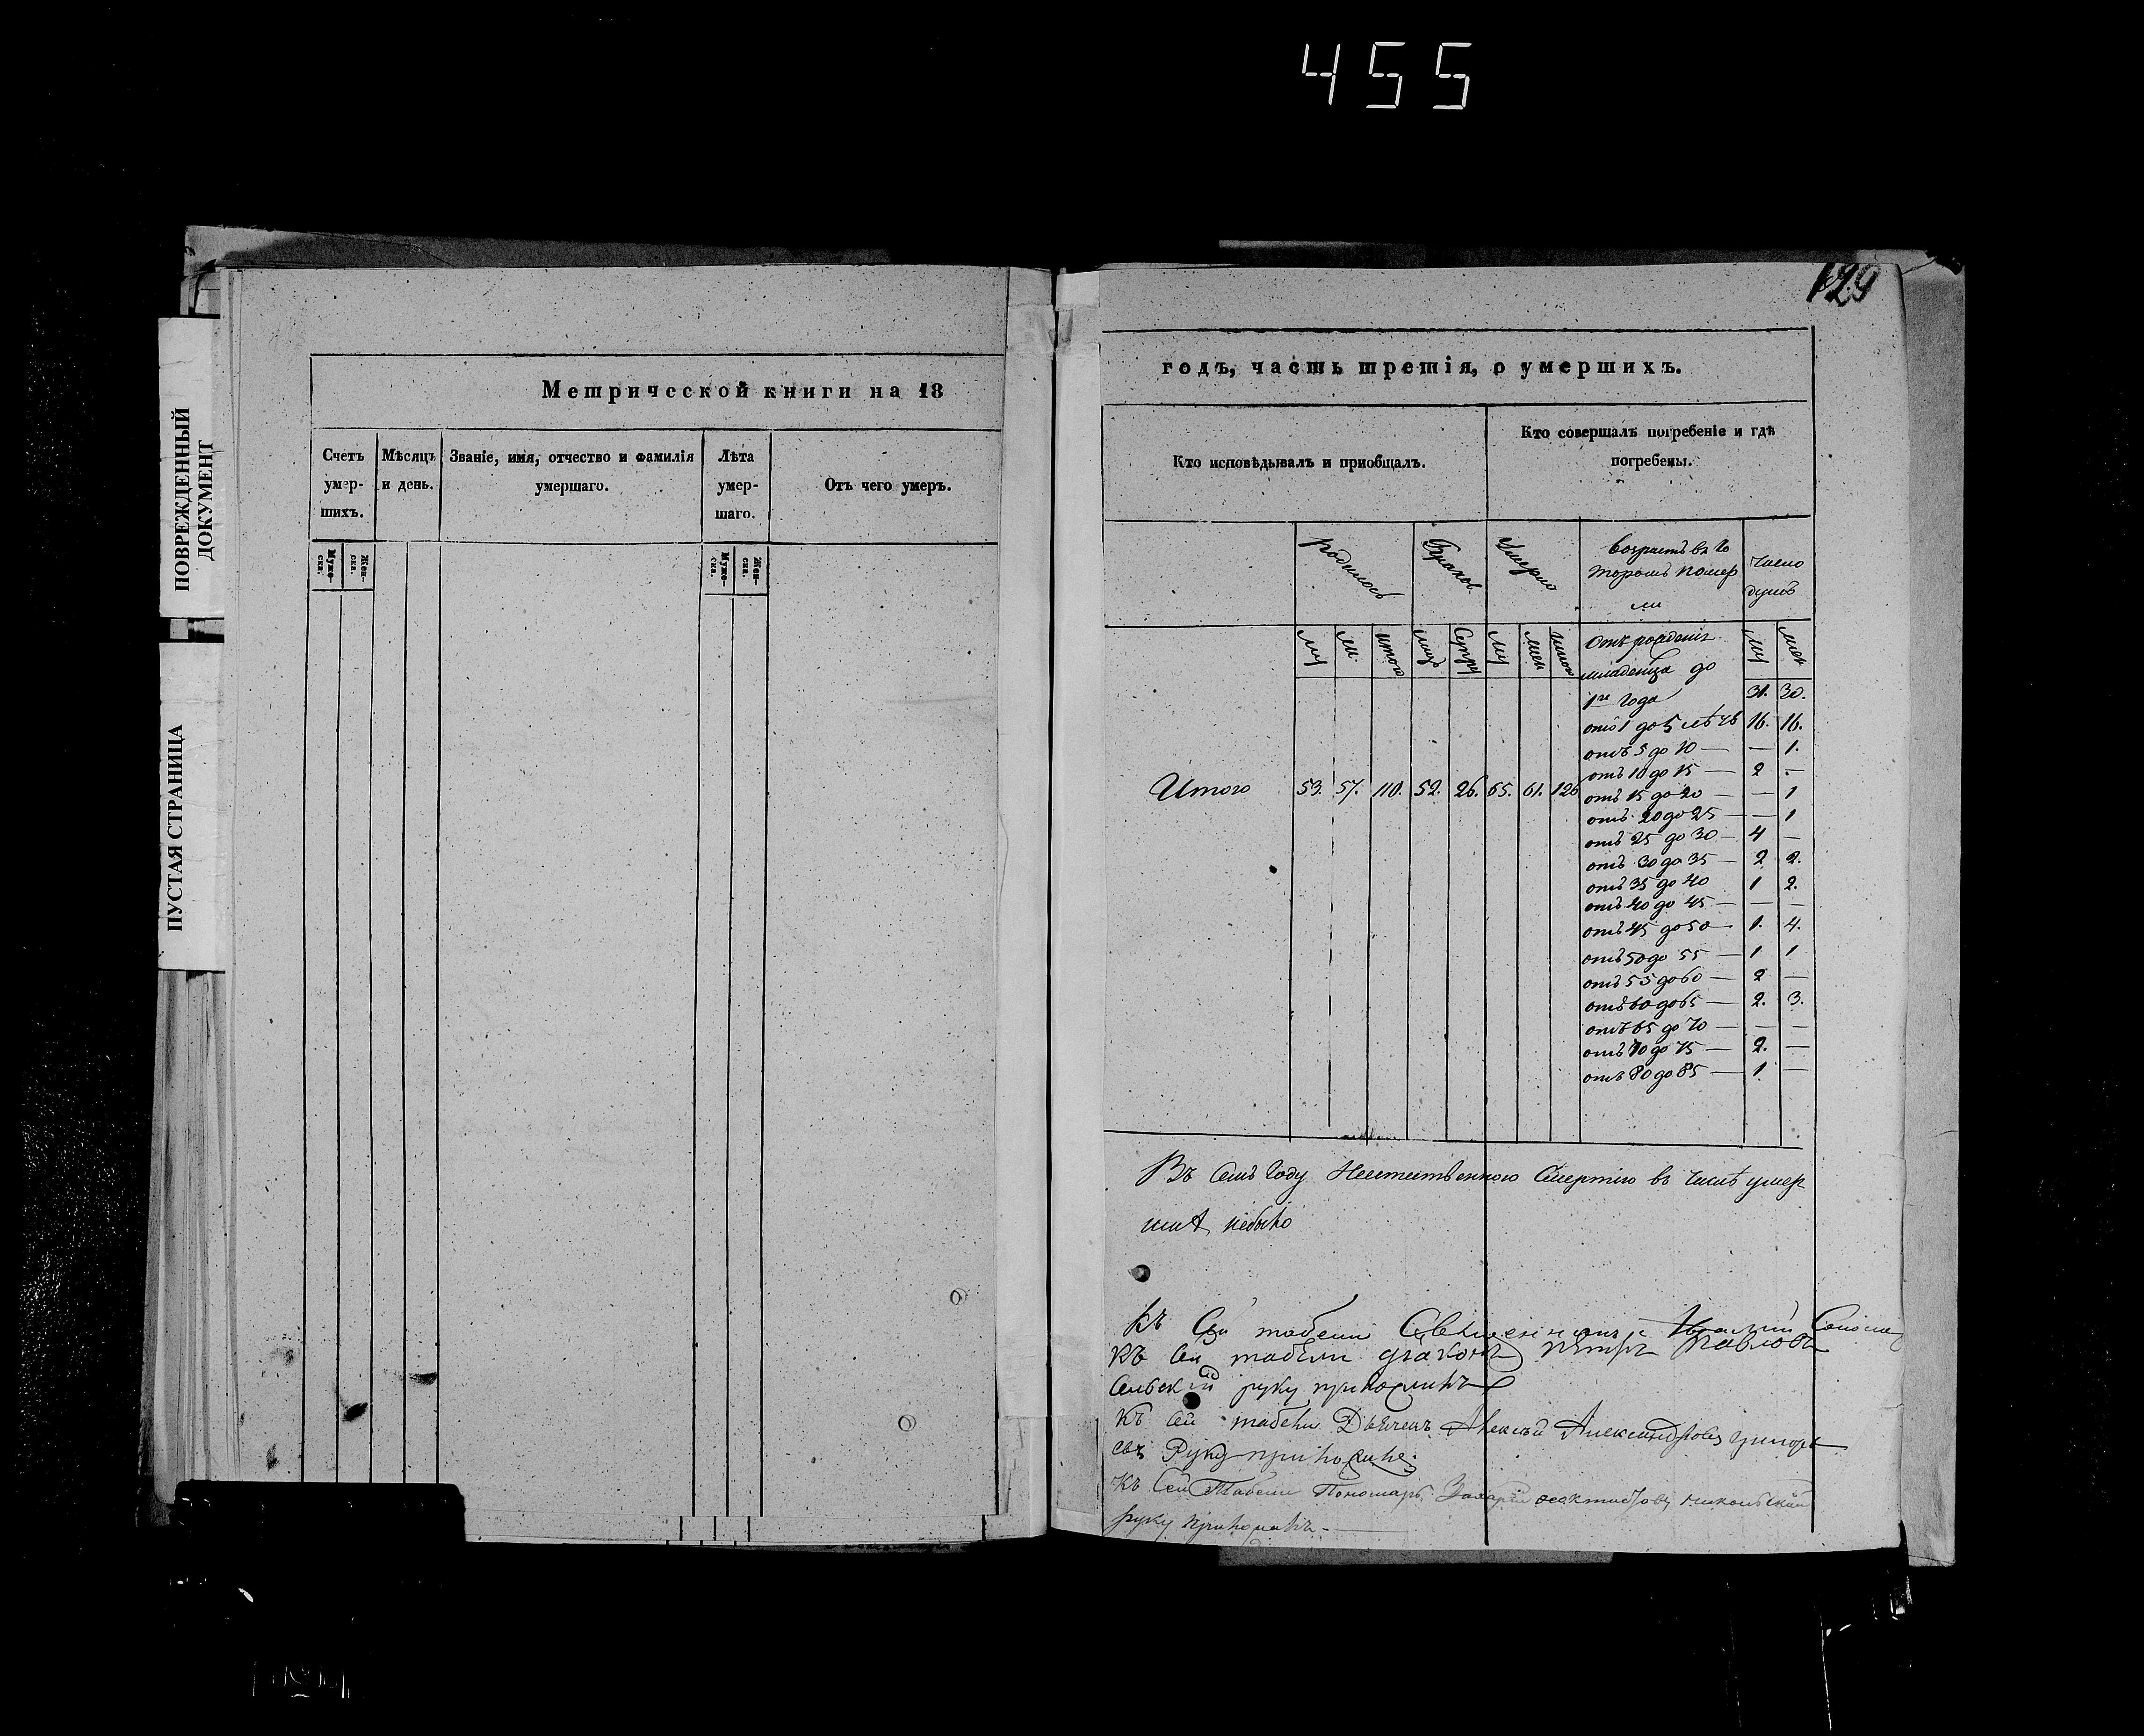 455
129
ПОВРЕЖДЕННЫЙ
ДОКУМЕНТ
ПУСТАЯ СТРАНИЦА
Метрической книги на 18
Счетъ умер- шихъ.
Мѣсяцъ и день.
Званіе, имя, отчество и фамилія умершаго.
Лѣта умер- шаго.
Отъ чего умеръ.
Муже- ска.
Жен- ска.
Муже- ска.
Жен- ска.
годъ, часть третія, о умершихъ.
Кто исповѣдывалъ и приобщалъ.
Кто совершалъ погребеніе и гдѣ
погребены.
родилось
Браков
Умерло
возрастъ въ ко
торомъ помер
ли
число
душъ
му
ж
итого
лицъ
Супру
му
жен
итого
му
жен
Отъ рожденія
младенца до
1го года 31. 30.
отъ 1 до 5 лѣтъ 16. 16.
отъ 5 до 10 — — 1.
отъ 10 до 15 — 2 —
Итого 53. 57. 110. 52. 26. 65. 61. 126
отъ 15 до 20 — — 1
отъ 20 до 25 — — 1
отъ 25 до 30 — 4 —
отъ 30 до 35 — 2 2.
отъ 35 до 40 1 2.
отъ 40 до 45 — — —
отъ 45 до 50 — 1. 4.
отъ 50 до 55 — 1 1
отъ 55 до 60 — 2 —
отъ 60 до 65 — 2. 3.
отъ 65 до 70 — — —
отъ 70 до 75 — 2. —
отъ 80 до 85 — 1. —
Въ семъ году Неестественною Смертію въ числѣ умер
шихъ небыло
Къ Сей табели Священникъ
Къ сей табели діаконъ Петръ Павловъ
руку приложилъ
Къ сей табели Дьячекъ Алексѣй Александровъ Григорь
евъ Руку приложилъ
Къ Сей Табели Пономарь Захарій Никольскій
руку приложилъ —